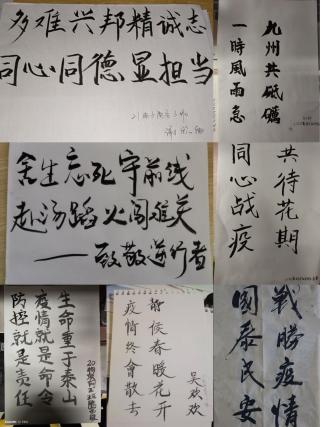 多难兴邦精诚志
同心同德显担当
九州共砥礪
一時風雨急
舍生忘死守前线
赴汤蹈火闯难关
——致敬逆行者
共待花期
同心战疫
生命重于泰山
疫情就是命令
防控就是责任
静候春暖花开
疫情终會散去
吴欢欢
戰勝疫情
國泰民安